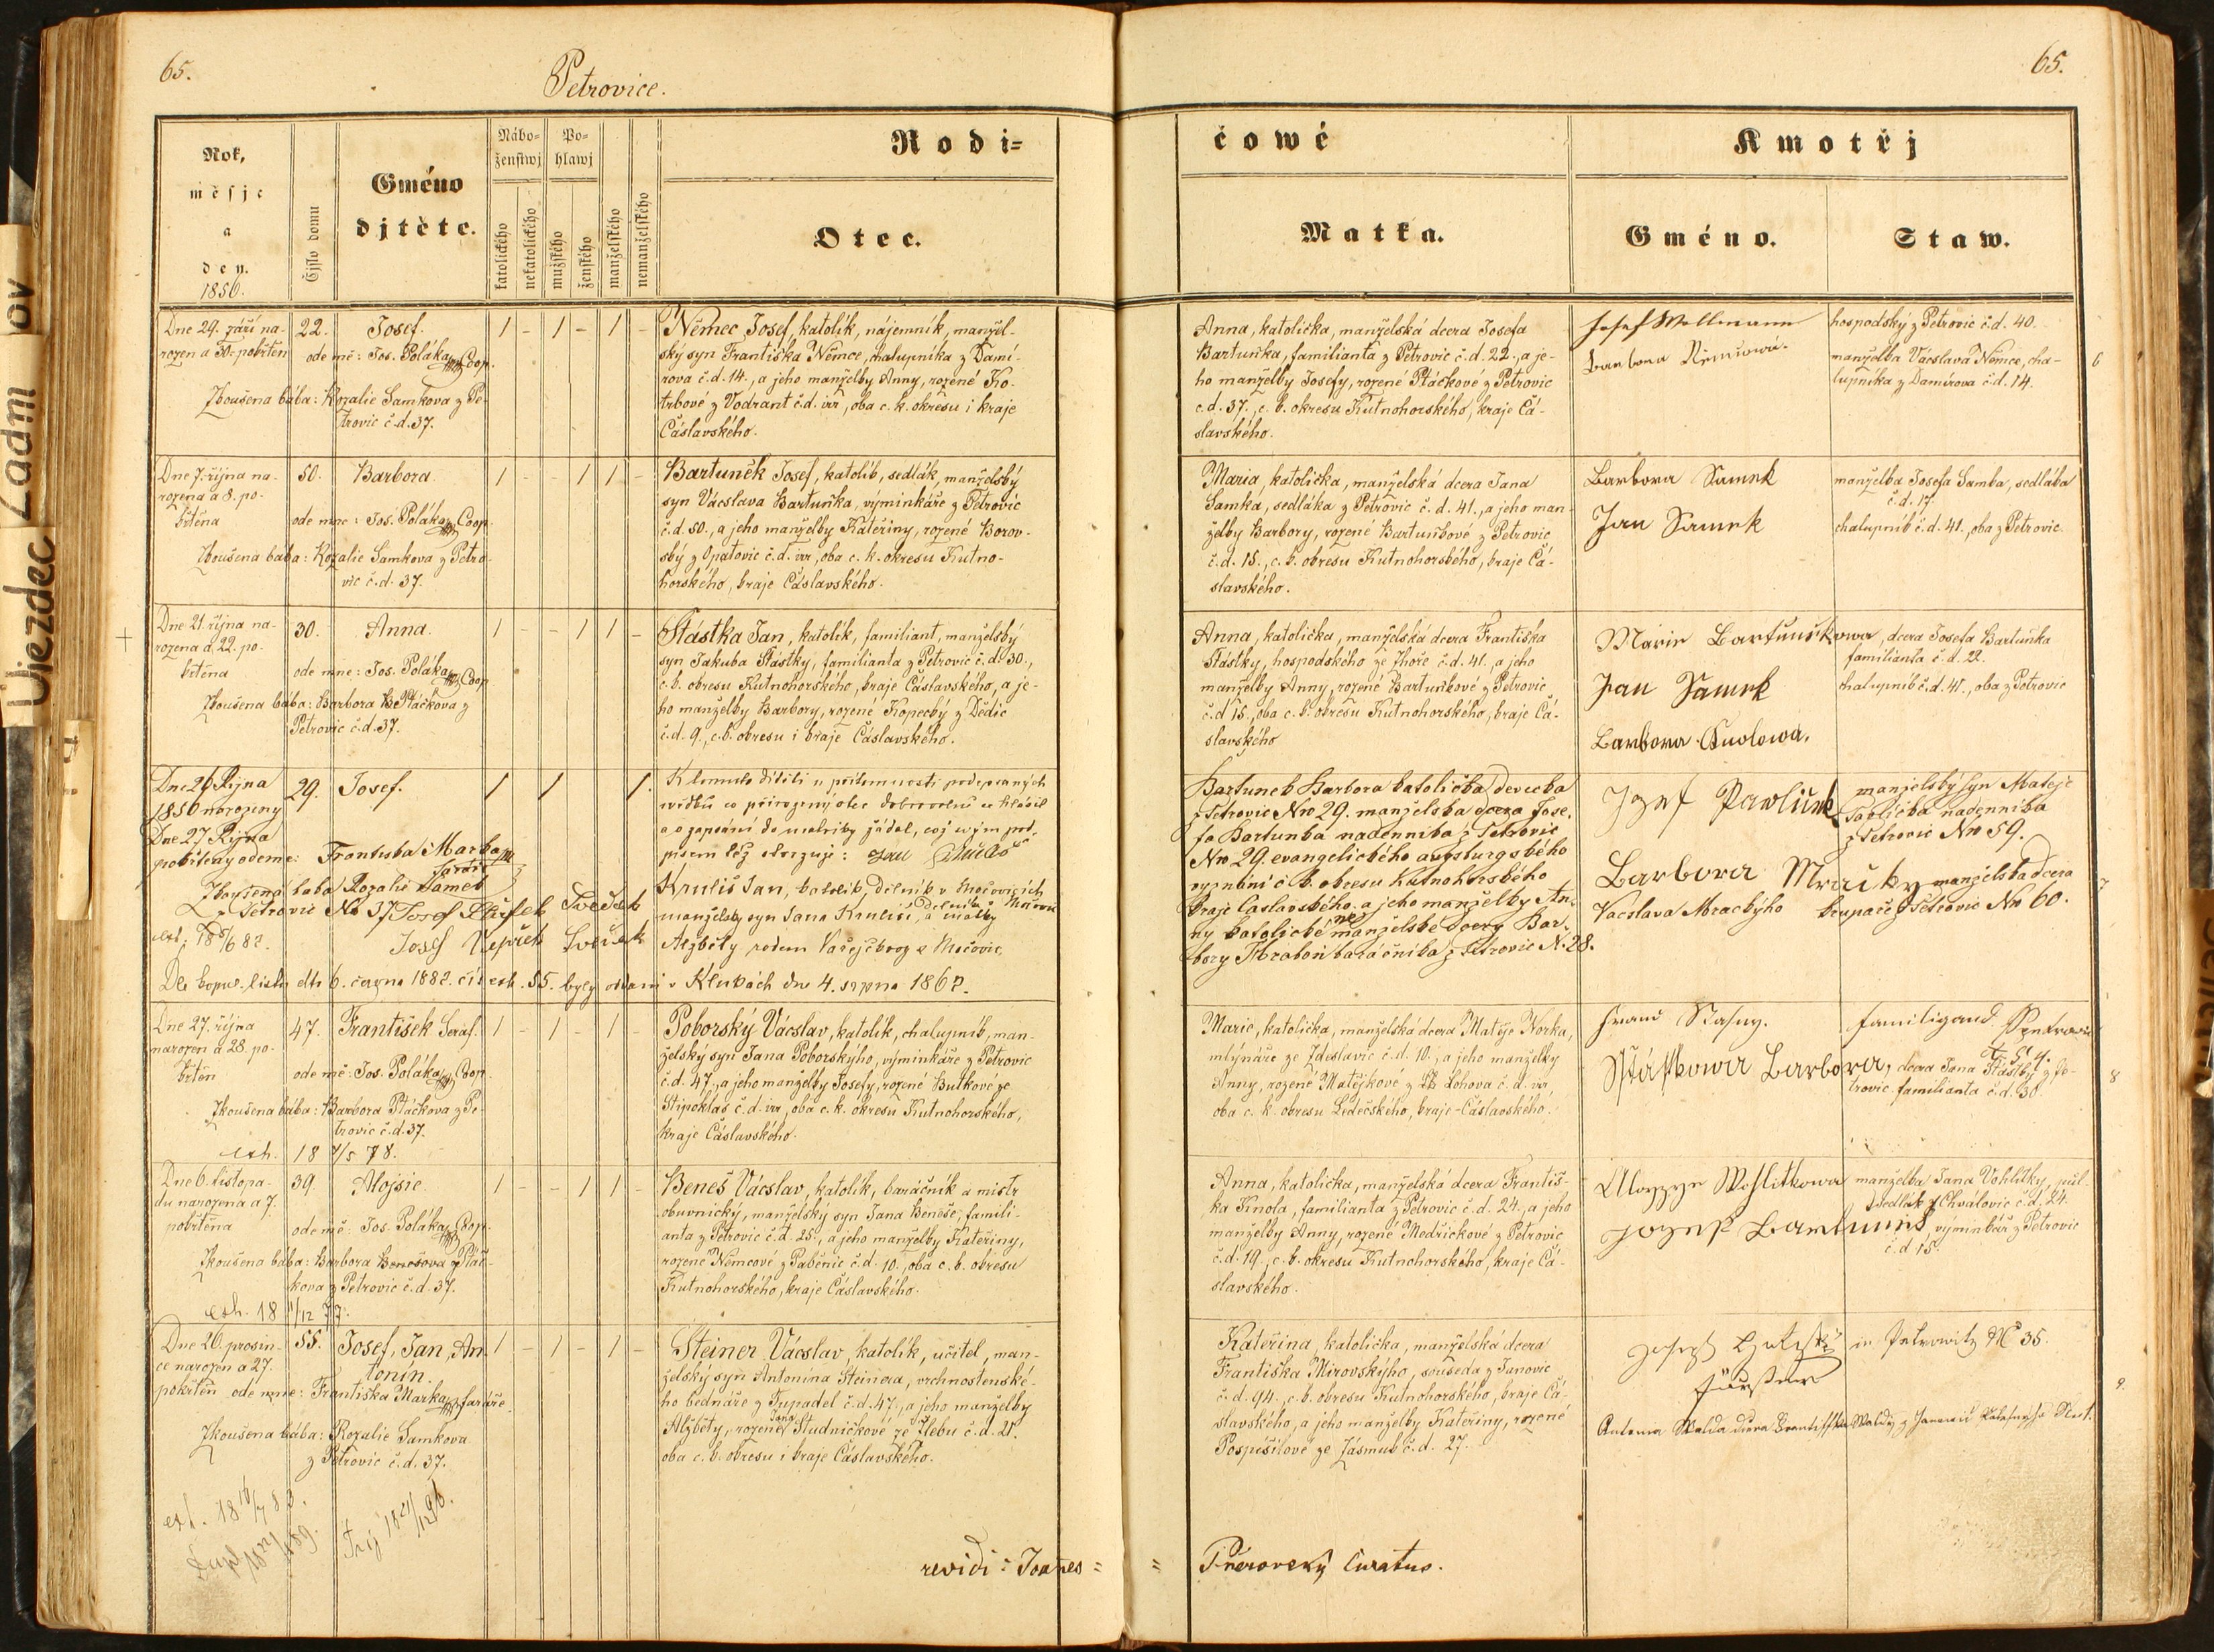 65.
Petrovice.
65.
Rok,
měsjc
a
den.
1850.
Čjslo domu
Gméno
djtěte.
Nábo-
ženstwj
Po-
hlawj
katolického
nekatolického
mužského
ženského
manželského
nemanželského
Rodi-
Otec.
čowé
Matka.
Kmotřj
Gméno.
Staw.
Dne 29. září na-
rozen a 30. pokřtěn
22.
Josef.
1 - 1 - 1 -
ode mě: Jos. Poláka Coop.
Zkoušena bába: Rozalie Samkova z Pe-
trovic č.d. 37.
Němec Josef, katolík, nájemník, manžel-
ský syn Františka Němce, chalupníka z Damí-
rova č.d. 14., a jeho manželky Anny, rozené Ko-
trbové z Vodrant č.d. , oba c. k. okresu i kraje
Čáslavského.
Anna, katolička, manželská dcera Josefa
Bartuňka, familianta z Petrovic č.d. 22., a je-
ho manželky Josefy, rozené Ptáčkové z Petrovic
č.d. 37., c. k. okresu Kutnohorského, kraje Čá-
slavského.
Josef Wollmann
Barbora Němcowá.
hospodský z Petrovic č.d. 40.
manželka Vácslava Němce, cha-
lupníka z Damírova č.d. 14.
6
Dne 7. října na-
rozena a 8. po-
křtěna
50.
Barbora.
1 - - 1 1 -
ode mne: Jos. Poláka Coop.
Zkoušena bába: Rozalie Samkova z Petro-
vic č.d. 37.
Bartuněk Josef, katolík, sedlák, manželský
syn Vácslava Bartuňka, výminkáře z Petrovic
č.d. 50., a jeho manželky Kateřiny, rozené Borov-
ský z Opatovic č.d. , oba c. k. okresu Kutno-
horského, kraje Čáslavského.
Maria, katolička, manželská dcera Jana
Samka, sedláka z Petrovic č.d. 41., a jeho man-
želky Barbory, rozené Bartuňkové z Petrovic
č.d. 15., c. k. okresu Kutnohorského, kraje Čá-
slavského.
Barbora Samek
Jan Samek
manželka Josefa Samka, sedláka
č.d. 17.
chalupník č.d. 41., oba z Petrovic.
Dne 21. října na-
rozena a 22. po-
křtěna
30.
Anna.
1 - - 1 1 -
ode mne: Jos. Poláka Coop.
Zkoušena bába: Barbora Ptáčkova z
Petrovic č.d. 37.
Šťástka Jan, katolík, familiant, manželský
syn Jakuba Šťástky, familianta z Petrovic č.d. 30.,
c. k. okresu Kutnohorského, kraje Čáslavského, a je-
ho manželky Barbory, rozené Kopecký z Dědic
č.d. 9., c. k. okresu i kraje Čáslavského.
Anna, katolička, manželská dcera Františka
Šťástky, hospodského ze Zhoře č.d. 41., a jeho
manželky Anny, rozené Bartuňkové z Petrovic
č.d. 15., oba c. k. okresu Kutnohorského, kraje Čá-
slavského
Marie Bartuňkowa, dcera Josefa Bartuňka
familianta č.d. 22.
Jan Samek
chalupník č.d. 41., oba z Petrovic
Barbora
Dne 26 Října
1850 narozeny
Dne 27 Října
pokřtěny odeme: Františka Marka
faráře
29.
Josef.
1 1 1.
Zkoušena baba Rozalie Samek
z Petrovic No 37 Josef Svědek
Josef Vepřek Svědek
K tomuto dítěti u přítomnosti podepsaných
svědků co přirozený otec dobrovolně se hlásil
a o zapsání do matriky žádal, což svým pod-
pisem též stvrzuje: Jan
Kruliš Jan, katolík, dělník v Močovicích
manželský syn Jana Kruliše, a matky
Alžběty rodem z Močovic,
Dle kopul. listu dto 6. června 1882. čís. exh. 55. byly oddáni v Klukách dne 4. srpna 1862.
Bartuněk Barbora katolička děvečka
z Petrovic Nro 29. manželska dcera Jose-
fa Bartunka nadenníka z Petrovic
Nro 29. evangelického augsburgského
vyznání c. k. okresu Kutnohorského
kraje Časlavského, a jeho manželky An-
ny katolické manželské dcery Bar-
bory baráčníka z Petrovic N. 28.
Jozef Pawlíček
manželský syn Matěje
Pavlíčka nadenníka
z Petrovic Nro 59.
Barbora Mracky manželska dcera
Vacslava Mrackýho krupaře z Petrovic Nro 60.
7
Dne 27. října
narozen a 28. po-
křtěn
47.
František Seraf.
1 - 1 - 1 -
ode mě: Jos. Poláka Coop.
Zkoušena bába: Barbora Ptáčkova z Pe-
trovic č.d. 37.
exh. 18 4/5 78.
Poborský Vácslav, katolík, chalupník, man-
želský syn Jana Poborskýho, výminkáře z Petrovic
č.d. 47., a jeho manželky Josefy, rozené Butkové ze
Štipoklas č.d. , oba c. k. okresu Kutnohorského,
kraje Čáslavského.
Marie, katolička, manželská dcera Matěje Horka,
mlynáře ze Zdeslavic č.d. 10., a jeho manželky
Anny, rozené Matějkové z Lohova č.d.
oba c. k. okresu Ledečského, kraje Čáslavského.
Šťástkowa Barbora, dcera Jana Šťástky z Pe-
trovic familianta č.d. 30.
8
Dne 6. listopa-
du narozena a 7.
pokřtěna
39.
Alojsie.
1 - - 1 1 -
ode mě: Jos. Poláka Coop.
Zkoušena bába: Barbora Benešova Ptáč-
kova z Petrovic č.d. 37.
exh. 18 11/12 77.
Beneš Vácslav, katolík, baráčník a mistr
obuvnický, manželský syn Jana Beneše, famili-
anta z Petrovic č.d. 25., a jeho manželky Kateřiny,
rozené Němcové z Paběnic č.d. 10., oba c. k. okresu
Kutnohorského, kraje Čáslavského.
Anna, katolička, manželská dcera Františ-
ka Finola, familianta z Petrovic č.d. 24., a jeho
manželky Anny, rozené Medřickové z Petrovic
č.d. 19., c. k. okresu Kutnohorského, kraje Čá-
slavského.
Aloyzye Wohlitkowa
Jozef Bartunek
manželka Jana Vohlitky, půl-
sedlák z Chvalovic č.d. 24.
výminkář z Petrovic
č.d. 15.
Dne 26. prosin-
ce narozen a 27.
pokřtěn ode mne: Františka Marka faráře
55.
Josef, Jan, An-
tonín.
1 - 1 - 1 -
Zkoušena bába: Rozalie Samkova
z Petrovic č.d. 37.
Steiner Vácslav, katolík, učitel, man-
želský syn Antonína Steinera, vrchnostenské-
ho bednáře z Tupadel č.d. 47., a jeho manželky
Alžběty, rozené Studničkové ze Žlebu č.d. 21.
oba c. k. okresu i kraje Čáslavského.
Kateřina, katolička, manželská dcera
Františka Mirovskýho, souseda z Janovic
č.d. 94., c. k. okresu Kutnohorského, kraje Čá-
slavského, a jeho manželky Kateřiny, rozené
Pospíšilové ze Zásmuk č.d. 27.
Joseph
in Petrowitz No 35.
Antonia Walda dcera Frantisska Waldy z
9.
exh. 18 16/7 83.
revidi: Joanes =
= Přerovský Curatus.
Újezdec Zadm
ov